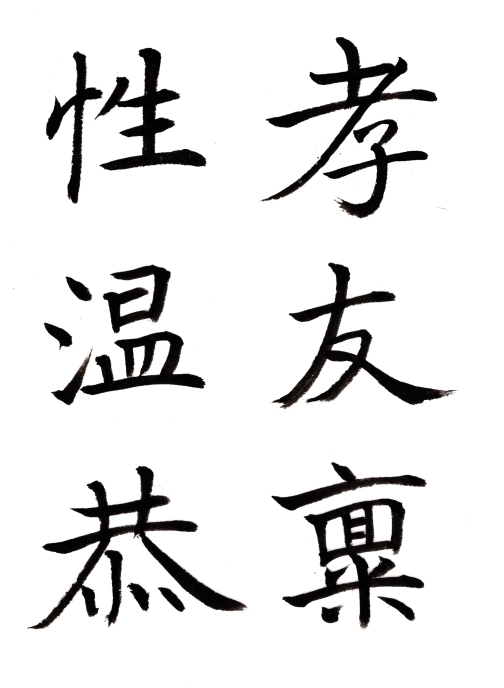 孝友稟
性温恭